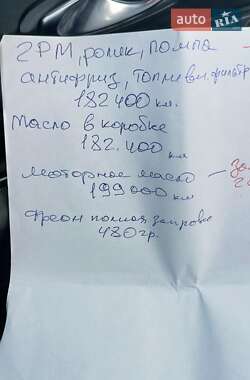 auto RIA
ГРМ, ролик, помпа
антифриз, топливн. фильтр
182 400 км.
Масло в коробке
182.400 км
Моторное масло – За
199 000 км
Фреон полная заправка
480 гр.